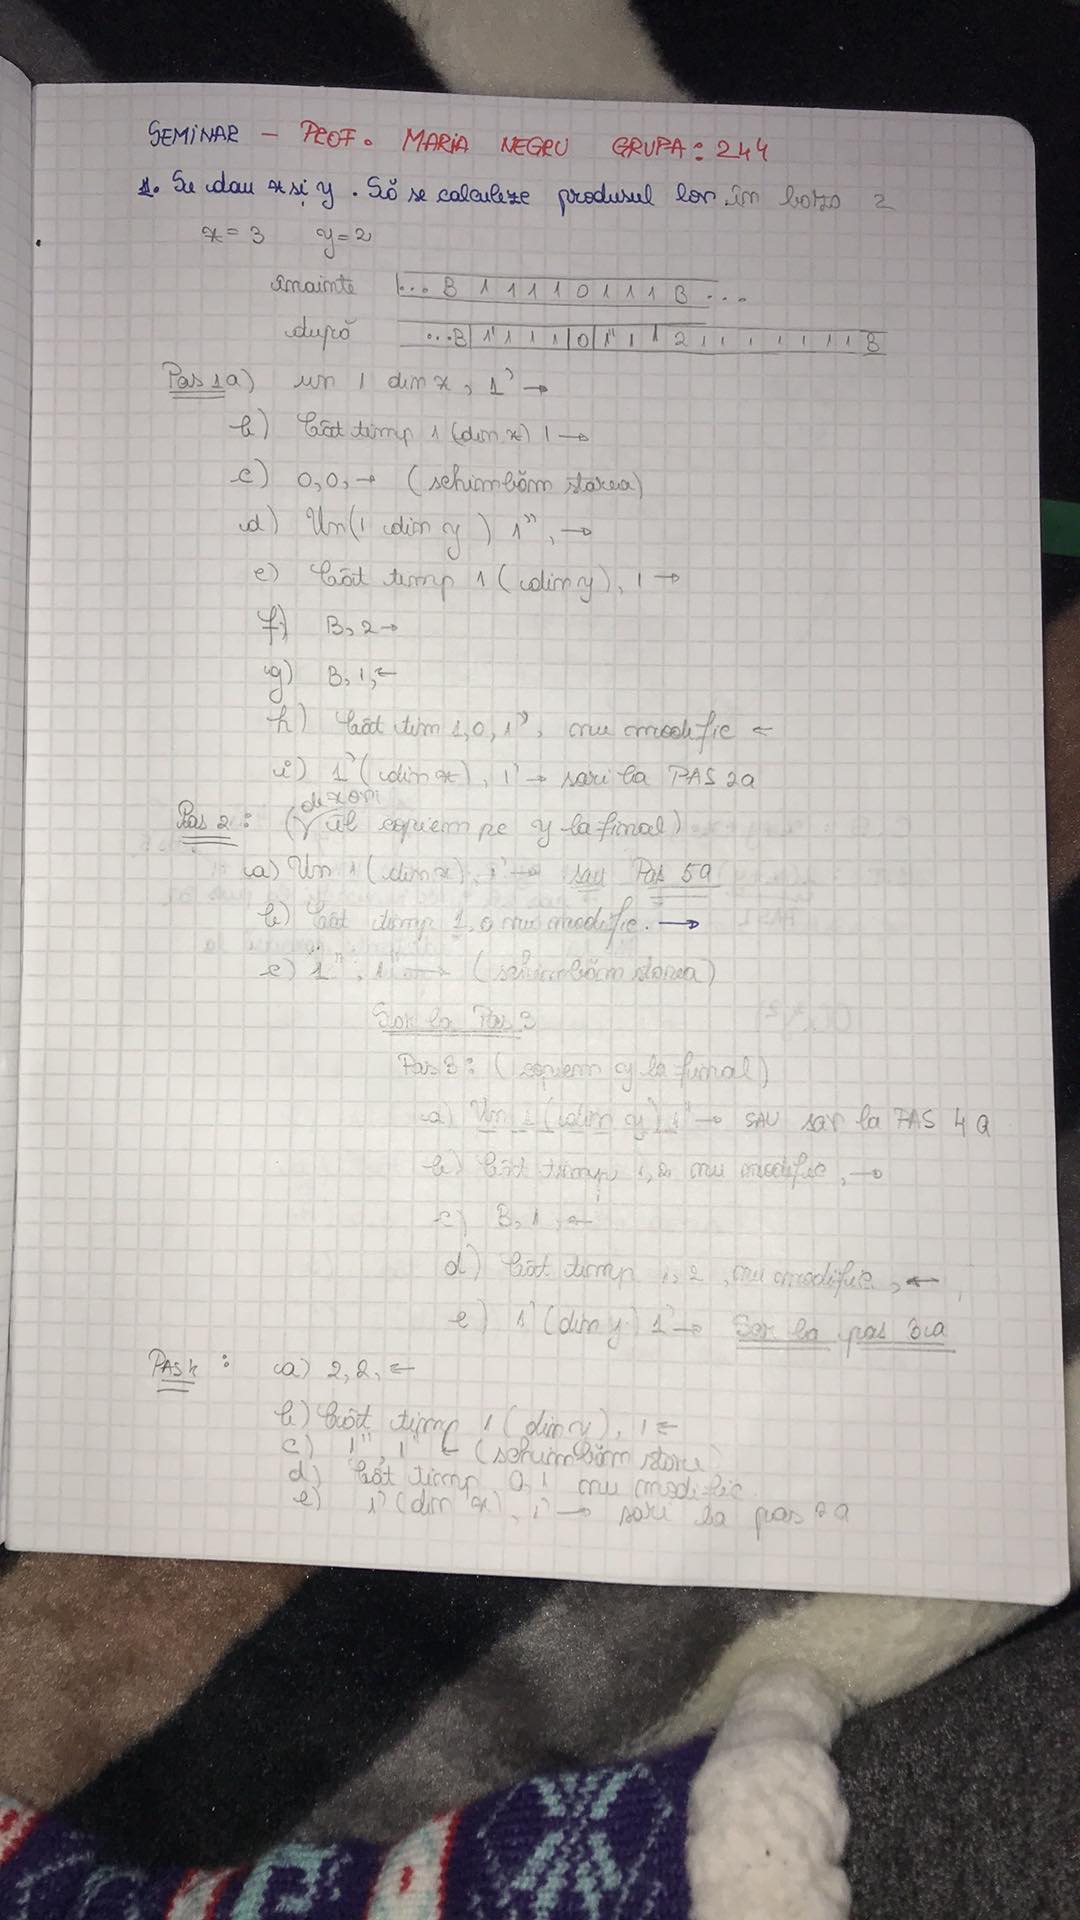 SEMINAR - PROF. MARIA NEGRU GRUPA: 244
1. Se dau x și y. Să se calculeze produsul lor în baza 2
x = 3 y = 2
înainte ... B 1 1 1 1 0 1 1 1 B ...
după ...B 1' 1 1 1 0 1" 1 1 2 1 1 1 1 1 1 1 B
Pas 1 a) un 1 din x, 1' →
b) Cât timp 1 (din x) 1 →
c) 0, 0, → (schimbăm starea)
d) Un (1 din y) 1", →
e) Cât timp 1 (din y), 1 →
f) B, 2 →
g) B, 1, ←
h) Cât tim 1, 0, 1", nu modific ←
i) 1' (din x), 1' → sari la PAS 2a
Pas 2: (de x ori îl copiem pe y la final)
a) Un 1 (din x), 1' → sau Pas 5a
b) Cât timp 1, 0 nu modific. →
c) 1", 1" → (schimbăm starea)
Sar la Pas 3
Pas 3: (copiem y la final)
a) Un 1 (din y) 1" → SAU sar la PAS 4 a
b) Cât timp 1, 2 nu modific, →
c) B, 1, ←
d) Cât timp 1, 2, nu modific, ←
e) 1' (din y) 1 → Sar la pas 3a
PAS 4: a) 2, 2, ←
b) Cât timp 1 (din y), 1 ←
c) 1", 1" ← (schimbăm stare)
d) Cât timp 0, 1 nu modific.
e) 1' (din x), 1' → sari la pas 2a